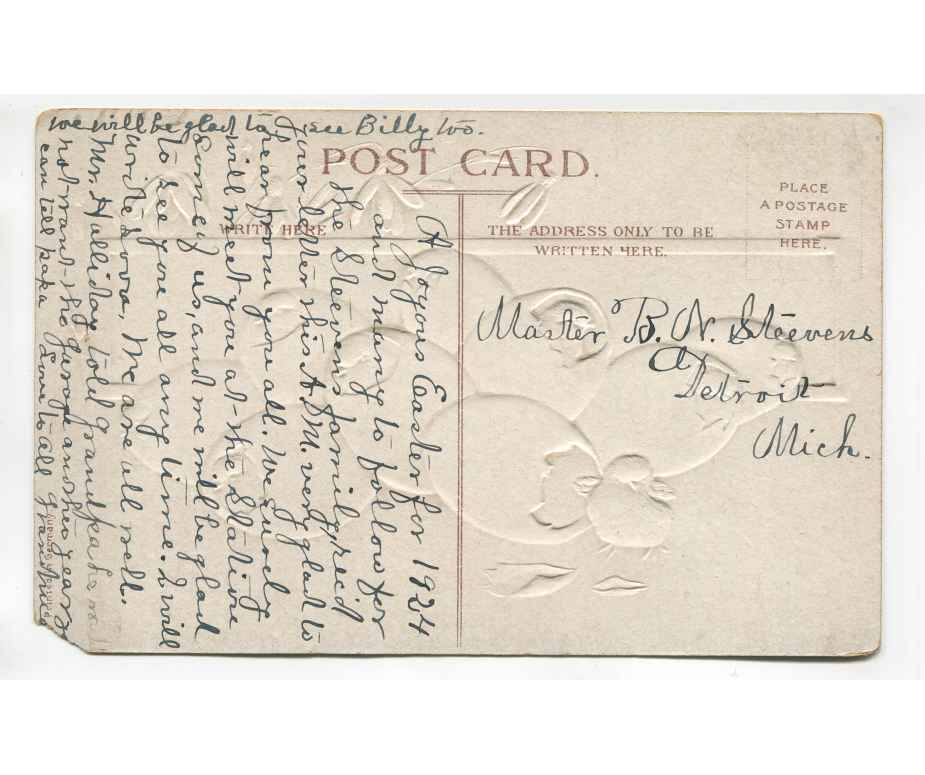 we will be glad to see Billy too.
POST CARD.
WRITE HERE
THE ADDRESS ONLY TO BE
WRITTEN HERE.
PLACE
A POSTAGE
STAMP
HERE.
A Joyous Easter for 1924
and many to follow for
the Steevens family recd
your letter this A.M. very glad to
hear from you all. We surely
will meet you at the Station
Loney us, and we will be glad
to see you all any time. I will
write Lova, We are all well.
Mr. Halliday told grandpa he
not want the farm another year
can tell papa Love to all Grandma
Master B. N. Steevens
Detroit
Mich.